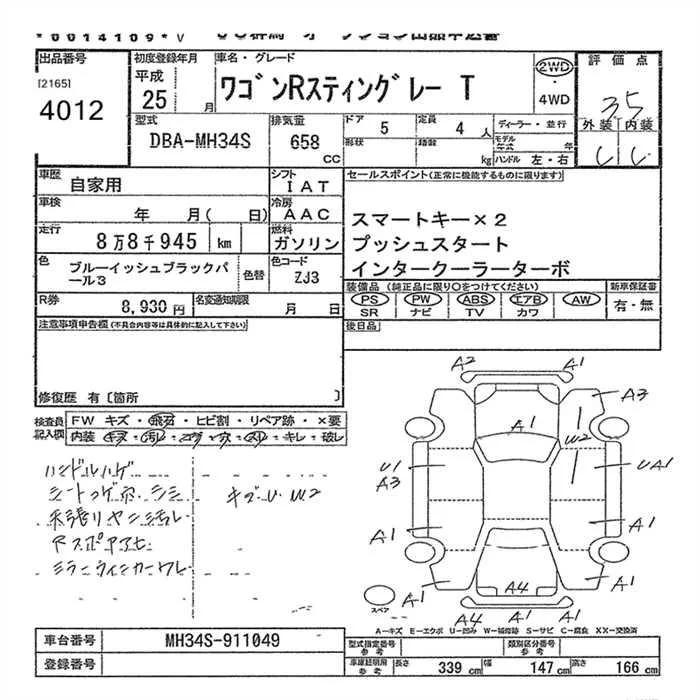 *0014109*V
出品番号
[2165]
4012
初度登録年月
平成
25 月
車名・グレード
ワゴンRスティングレー T
2WD
4WD
評価点
3.5
外装 内装
型式
DBA-MH34S
排気量
658
CC
ドア 5
定員 4 人
形状
積載 kg
ディーラー・並行
モデル年式 年
ハンドル 左・右
車歴 自家用
シフト IAT
車検 年 月( 日)
冷房 AAC
走行 8万8千945 km
燃料 ガソリン
色 ブルーイッシュブラックパール3
色替
色コード ZJ3
R券 8,930円
名変通知期限 月 日
セールスポイント(正常に機能するものに限ります)
スマートキー×2
プッシュスタート
インタークーラーターボ
装備品(純正品に限り○をつけてください)
新車保証書
PS PW ABS エアB AW
SR ナビ TV カワ
有・無
後日品
注意事項申告欄(不具合内容等は具体的に記入して下さい)
修復歴 有〔箇所 〕
検査員記入欄
FW キズ・飛石・ヒビ割・リペア跡・×要
内装 キズ・汚レ・コゲ・穴・スレ・キレ・破レ
ハンドルハゲ
キズ U W2
ミラーウィンカーワレ
A2 A1
A3
A1
W2
U1
A3
UA1
A1 A1
A4
A1 A1
A4 A1 A1
スペア
A-キズ E-エクボ U-凹み W-補修跡 S-サビ C-腐食 XX-交換済
車台番号 MH34S-911049
登録番号
型式指定番号 参考
類別区分番号 参考
車庫証明用 参考
長さ 339 cm 幅 147 cm 高さ 166 cm